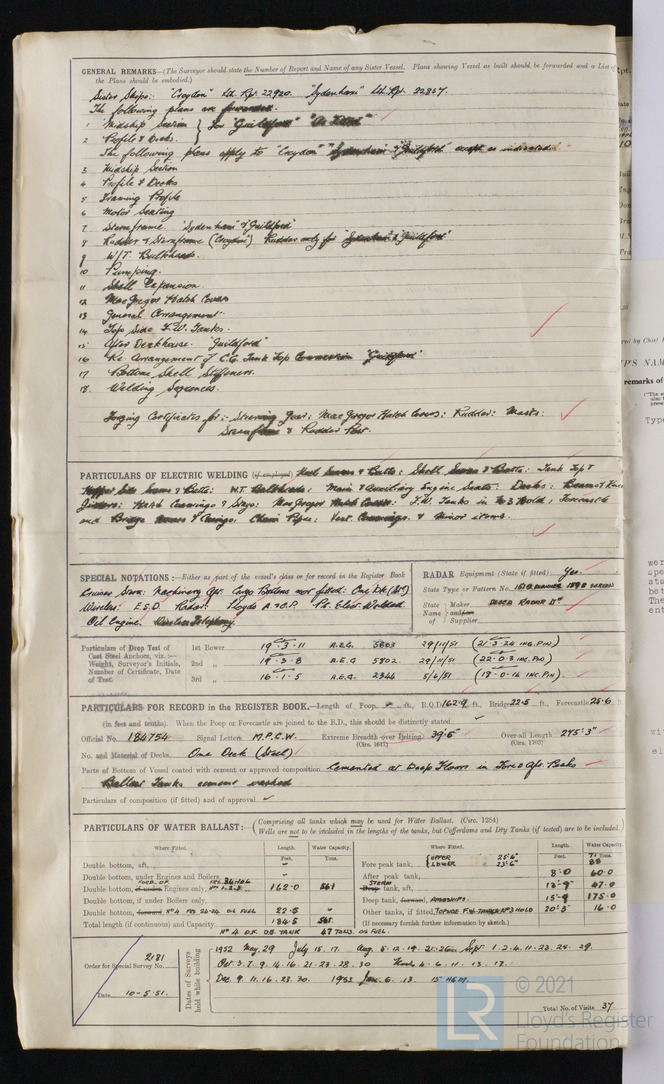 GENERAL REMARKS—(The Surveyor should state the Number of Report and Name of any Sister Vessel. Plans showing Vessel as built should be forwarded and a List of
the Plans should be embodied.)
Sister Ships: "Croydon" Lth. Rpt. 22920. "Sydenham" Lth. Rpt. 22857.
The following plans are forwarded.
1 Midship Section } for "Guildford" "As Fitted"
2 Profile & Decks.
The following plans apply to "Croydon" "Sydenham" & "Guildford" except as indicated
3 Midship Section
4 Profile & Decks
5 Framing Profile
6 Motor Seating
7 Sternframe "Sydenham" & "Guildford"
8 Rudder & Sternframe (Croydon) Rudder only for "Sydenham" & "Guildford"
9 W/T Bulkheads.
10 Pumping.
11 Shell Expansion.
12 MacGregor Hatch Covers
13 General Arrangement
14 Top Side F.W. Tanks.
15 After Deckhouse. "Guildford"
16 Re Arrangement of C.G. Tank Top Connection "Guildford"
17 Bottom Shell Stiffeners.
18. Welding Sequences.
Forging Certificates for:- Steering Gear: MacGregor Hatch Covers: Rudder: Masts:
Sternframe & Rudder Post.
PARTICULARS OF ELECTRIC WELDING (if employed) Keel Seams & Butts: Shell Seams & Butts: Tank Top &
Seams & Butts: W.T. Bulkheads: Main & Auxiliary Engine Seats: Decks: Beams & Knees
Girders: Hatch Coamings & Stays: MacGregor Hatch Covers: F.W. Tanks in No 3 Hold: Forecastle
and Bridge: Chain Pipes: Vent Coamings. & Minor items.
SPECIAL NOTATIONS:—Either as part of the vessel's class or for record in the Register Book
Cruiser Stern: Machinery Aft: Cargo Battens not fitted: One Dk (Stl)
Wireless: E.S.D. Radar: Lloyds A. & C.P. Pt. Elec. Welded
Oil Engine.
RADAR Equipment (State if fitted) Yes.
State Type or Pattern No.
State Name } Maker and/or of Supplier DECCA RADAR Ltd
Particulars of Drop Test of Cast Steel Anchors, viz.:— Weight, Surveyor's Initials, Number of Certificate, Date of Test.
1st Bower 19 . 3 . 11 A.E.G. 5803 29/11/51 (21.3.24 INC. PIN)
2nd „ 19 . 3 . 8 A.E.G 5802. 29/11/51 (22.0.3 INC. PIN)
3rd „ 16 . 1 . 5 A.E.G. 2344 5/6/51 (18.0.14 INC. PIN)
PARTICULARS FOR RECORD in the REGISTER BOOK.—Length of Poop ft., R.Q.D. 162.9 ft., Bridge 22.5 ft., Forecastle 25.6 ft.
(in feet and tenths). When the Poop or Forecastle are joined to the B.D., this should be distinctly stated
Official No. 184754 Signal Letters M.P.C.W. Extreme Breadth over Belting 39'.5" (Circ. 1617) Over-all Length 275'.3" (Circ. 1703)
No. and Material of Decks One Deck (Steel)
Parts of Bottom of Vessel coated with cement or approved composition Cemented at Deep Floors in Fore & Aft Peaks
Ballast Tanks cement washed
Particulars of composition (if fitted) and of approval
PARTICULARS OF WATER BALLAST:— (Comprising all tanks which may be used for Water Ballast. (Circ. 1284)
Wells are not to be included in the lengths of the tanks, but Cofferdams and Dry Tanks (if tested) are to be included.)
Where Fitted. Length. Feet. Water Capacity. Tons.
Double bottom, aft,
Double bottom, under Engines and Boilers,
Double bottom, if under Engines only, 162.0 561
Double bottom, if under Boilers only,
Double bottom, forward, No 4 OIL FUEL 22.5
Total length (if continuous) and Capacity 184.5 561.
No 4 O.F. D.B. TANK 47 TONS. OIL FUEL.
Where Fitted. Length. Feet. Water Capacity. Tons.
Fore peak tank, { UPPER 25'6" LOWER 23'6" 71 88
After peak tank, 8'.0 60.0
Deep tank, aft, 12'-9" 47.0
Deep tank, forward, AMIDSHIPS 15'-9 175.0
Other tanks, if fitted, TOPSIDE F.W. TANKS No 3 HOLD 20'.3" 16.0
(If necessary furnish further information by sketch.)
Order for Special Survey No. 2181
Date 10-5-51.
Dates of Surveys held while building
1952 May. 29 July 15. 17. Aug. 5. 12. 19. 21. 26. Sept. 1. 2. 4. 11. 23. 24. 29.
Oct. 3. 7. 9. 14. 16. 21. 23. 28. 30 Nov. 4. 6. 11. 13. 17.
Dec. 9. 11. 16. 23. 30. 1953 Jan. 6. 13.
Total No. of Visits 37.
LR
© 2021
Lloyd's Register
Foundation